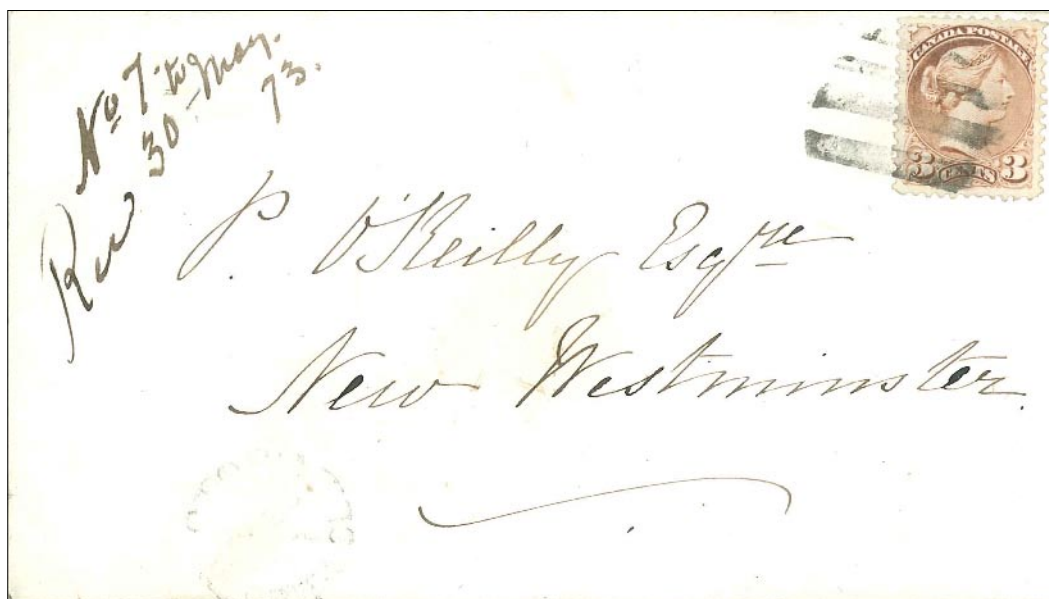 No 7.
Recd 30th May.
73.
CANADA POSTAGE
3 CENTS 3
P. O'Reilly Esqre
New Westminster.